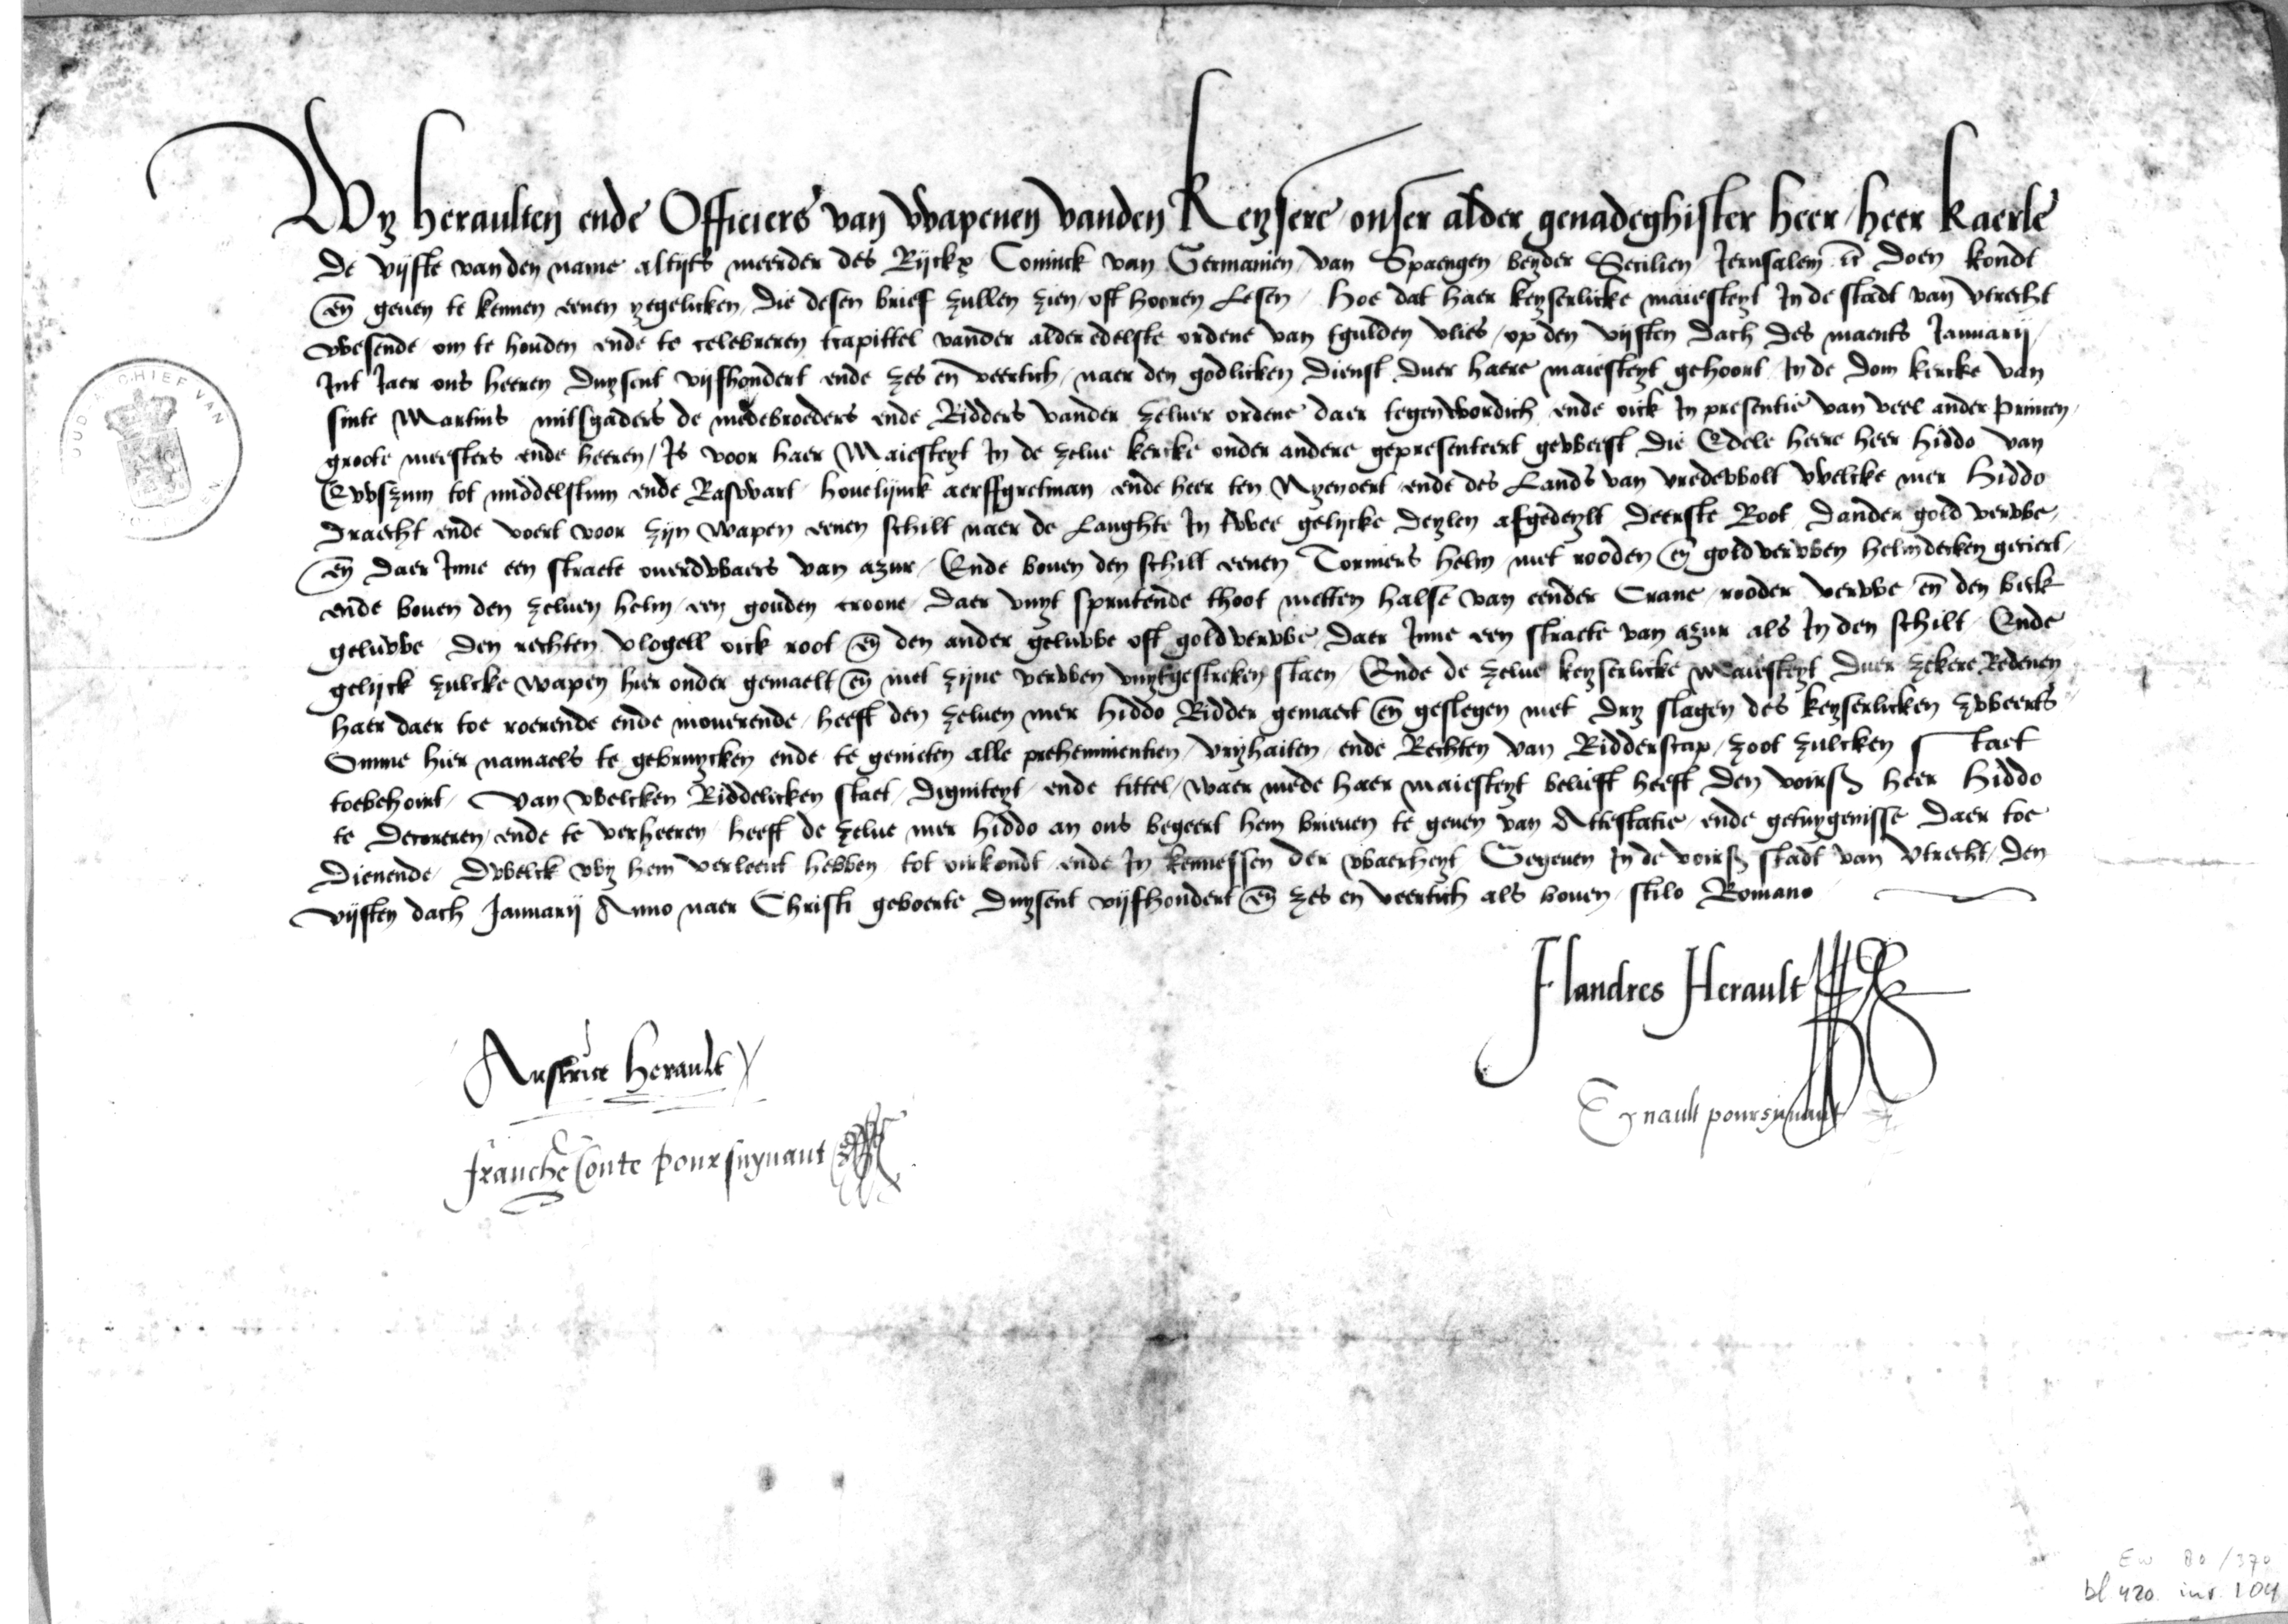 Wy heraulten ende Officiers van Wapenen vanden Keysere onser alder genadeghister heer / heer Kaerle
de vyfte van den name altyts meerder des Ryckx Coninck van Germanien / van Spaengen beyder Secilien Jerusalem doen kondt
en geuen te kennen eenen yegelicken / die desen brief zullen zien / oft hooren Lesen / Hoe dat haer keyserlicke maiesteyt In de stadt van vtrecht
wesende om te houden ende te celebreren tcapittel vander alder edelste ordene van tgulden vlies / op den vyften dach des maents Januarij /
Int Jaer ons heeren duysent vyfhondert ende zes en veertich / naer den godlicken dienst duer haere maiesteyt gehoort In de dom kercke van
sinte Martins mitsgaders de medebroeders ende Ridders vander zeluer ordene daer tegenwordich ende oick In presentie van veel ander Princen /
groote meesters ende heeren / Is voor haer Maiesteyt In de zelue kercke onder andere gepresenteert geweest die Edele heere heer hiddo van
Ewszum tot middelstum ende Raswart houelijnck aerffgretman ende heer ten Nyenoert ende des Lands van vredewolt welcke mer Hiddo
draecht ende voert voor zyn wapen eenen schilt naer de Langhte In twee gelycke deylen afgedeylt deerste Root dander gold verwe /
en daer Inne een straete ouerdwaers van azur / Ende bouen den schilt eenen Torniers helm met rooden en gold verwen helmdecken geciert /
ende bouen den zeluen helm / een gouden croone daer vuyt sprutende thoot metten halse van eender Crane / rooder verwe / en den beck
geluwe den rechten vlogell oick root en den ander geluwe oft gold verwe daer Inne een straete van azur als In den schilt Ende
gelijck zulcke wapen hier onder gemaelt en met zijne verwen vuytgestreken staen / Ende de zelue keyserlicke Maiesteyt duer zekere Redenen
haer daer toe roerende ende mouerende / heeft den zeluen mer Hiddo Ridder gemaect en geslegen met dry slagen des keyserlicken zweerts
Omme hier namaels te gebruycken ende te genieten alle preheminentien / vryhaiten / ende Rechten van Ridderscap / zoot zulcken Staet
toebehoirt / van welcken Riddelicken staet / digniteyt ende tittel / waer mede haer maiesteyt belieft heeft den voirs heer Hiddo
te decoreren / ende te verheeren heeft de zelue mer hiddo an ons begeert hem brieuen te geuen van Attestatie / ende getuygenisse daer toe
dienende / dwelck wy hem verleent hebben tot oirkondt ende In kennessen der waerheyt Gegeuen In de voirs stadt van vtrecht / den
vyften dach Januarij Anno naer Christi geboerte duysent vyfhondert en zes en veertich als bouen / stilo Romano
Flandres Herault
Austrice herault
nault poursuyuant
franche Conte poursuyuant
OUD ARCHIEF VAN
EW 80/370
bl 420. inv. 104